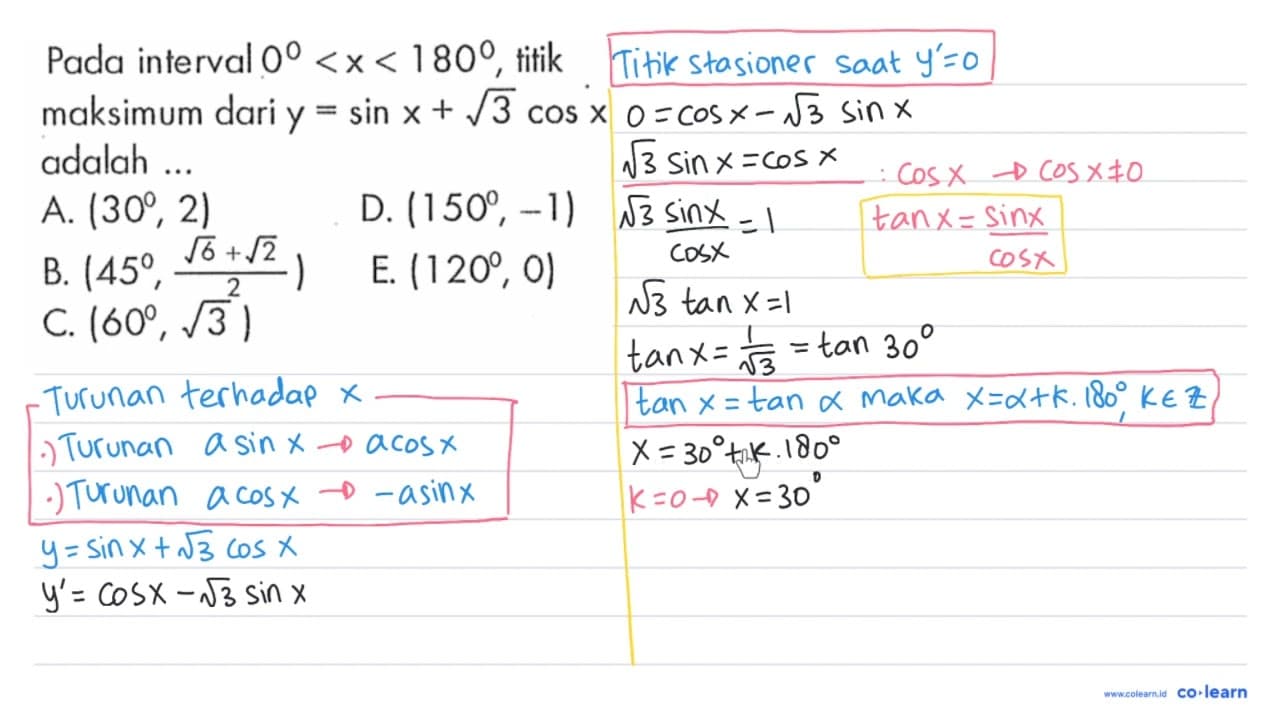 Pada interval 0⁰ < x < 180⁰, titik
maksimum dari y = sin x + √3 cos x
adalah ...
A. (30⁰, 2)
B. (45⁰, (√6 + √2)/2)
C. (60⁰, √3)
D. (150⁰, −1)
E. (120⁰, 0)
Turunan terhadap x
•) Turunan a sin x → a cos x
•) Turunan a cos x → -a sin x
y = sin x + √3 cos x
y' = cos x − √3 sin x
Titik stasioner saat y'=0
0 = cos x − √3 sin x
√3 sin x = cos x
: cos x → cos x ≠ 0
√3 sin x/cos x = 1
tan x = sin x/cos x
√3 tan x = 1
tan x = 1/√3 = tan 30⁰
tan x = tan α maka x = α + k. 180⁰, k ∈ Z
x = 30⁰ + k . 180⁰
k = 0 → x = 30⁰
www.colearn.id co·learn